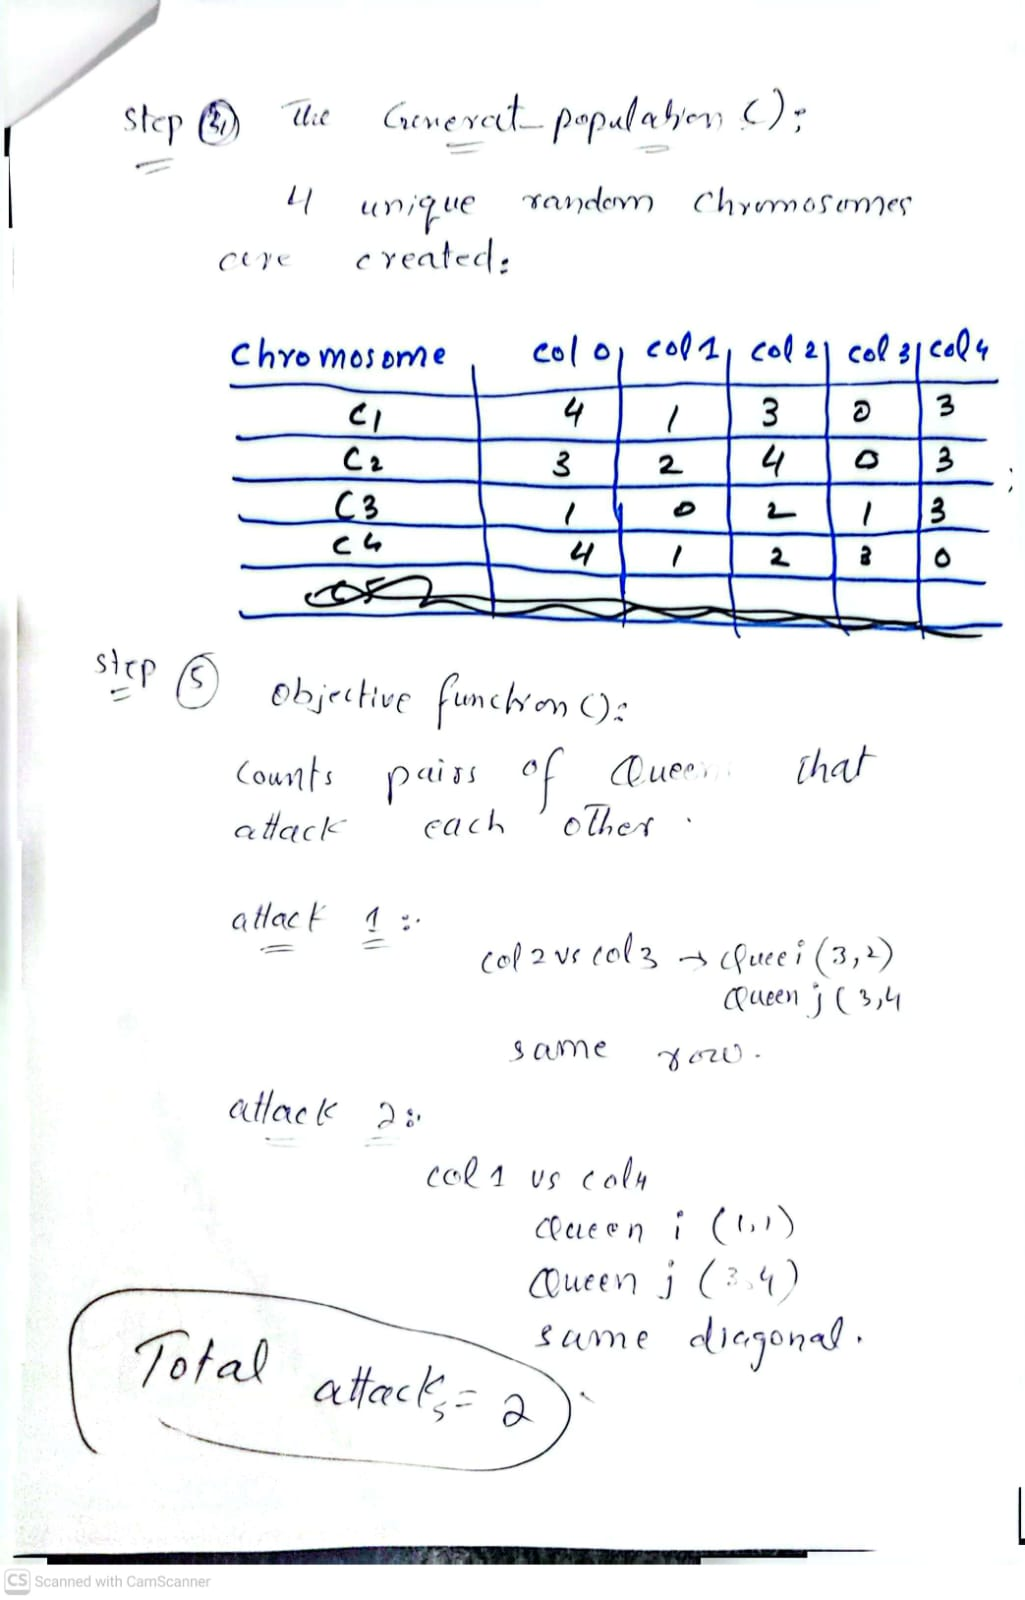 step The Generat_population ():
4 unique random Chromosomes
are created:
Chromosome col 0 col 1 col 2 col 3 col 4
C1 4 1 3 0 3
C2 3 2 4 0 3
C3 1 0 2 1 3
C4 4 1 2 3 0
step 5 objective function ():
Counts pairs of Queen that
attack each other .
attack 1 :
col 2 vs col 3 → Quee i (3,2)
Queen j (3,4
same row.
attack 2 :
col 1 vs col 4
Queen i (1,1)
Queen j (3,4)
same diagonal.
Total attacks = 2
CS Scanned with CamScanner